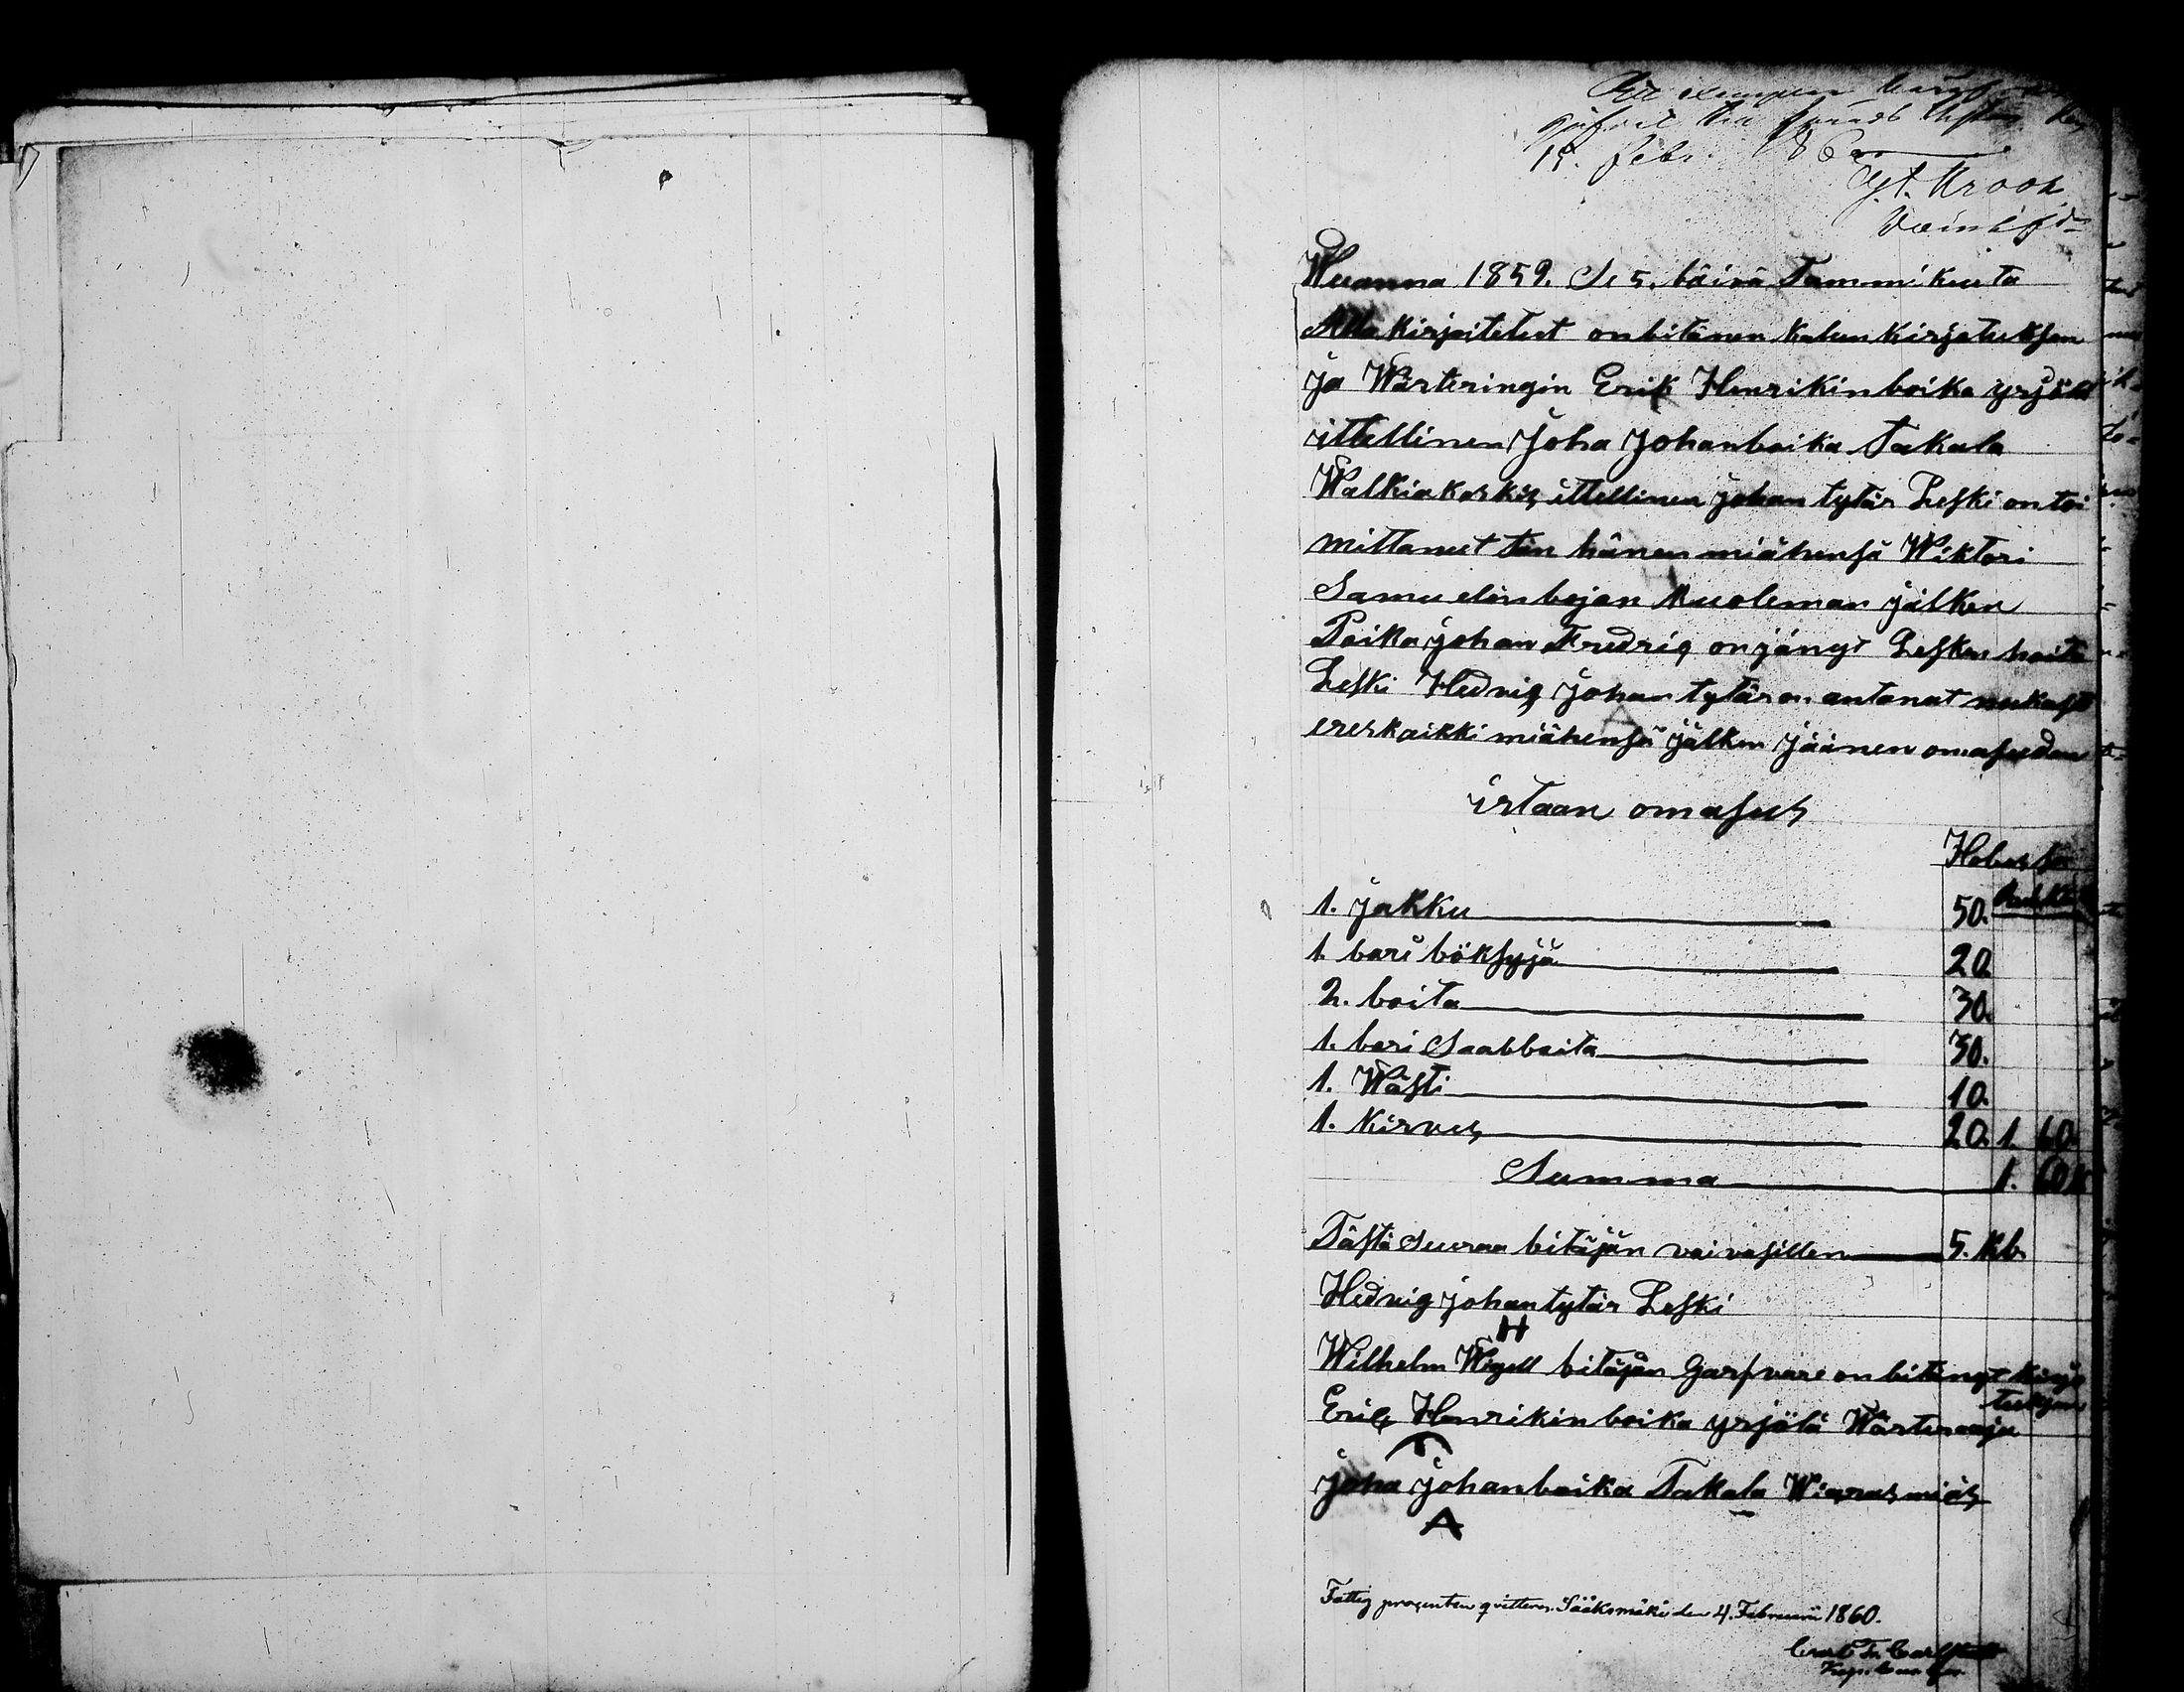 15. febr. 186
Gt. Krook
Wuanna 1859. Se 5. bäivä Tammikuuta
Allakirjoitetut on bitänen kalun kirjotuksen
ja Wärteringin Erik Henrikinboika yrjölä
ittellinen Joha Johanboika Takala
Walkiakoskis ittellinen johan tytär Leski on toi
mittanut tän hänen miähensä Wiktori
Samuelinbojan kuoleman jälken
Poika johan Fredriq on jänyt Lesken hoito
Leski Hedvig johan tytär on antanut
kaikki miähensä jälken jäänen omasuden
irtaan omasus
Hobias
1. jakku 50.
1. bari böksyjä 20
2. boita 30.
1. bari Saabbaita 30.
1. Wästi 10.
1. kirves 20. 1. 60.
Summa 1. 60 K
Tästä Seuraa bitäjän vaivasillen 5. kb.
Hedvig johantytär Leski
H
Wilhelm Wigell bitäjän Garfvare on bitänyt kirjo
tuksen
Erik Henrikin boika yrjölä Wärteraaja
joha johanboika Takala Wierasmiäs
A
Fattig procenten qvitteras. Sääksmäki den 4. Februari 1860.